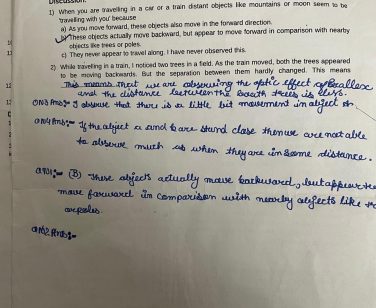 Discussion:
1) When you are travelling in a car or a train distant objects like mountains or moon seem to be
'travelling with you' because
a) As you move forward, these objects also move in the forward direction.
b) These objects actually move backward, but appear to move forward in comparison with nearby
objects like trees or poles.
c) They never appear to travel along. I have never observed this.
2) While travelling in a train, I noticed two trees in a field. As the train moved, both the trees appeared
to be moving backwards. But the separation between them hardly changed. This means
This means that we are observing the optic effect of Parallax
and the distance between the both trees is
Ans:- I observe that there is a little bit movement in object
Ans:- If the object a and b are stand close then we are not able
to observe much as when they are in some distance.
(B) These objects actually move backward, but appear
move forward in comparison with nearby objects like
or poles.
Ans:-